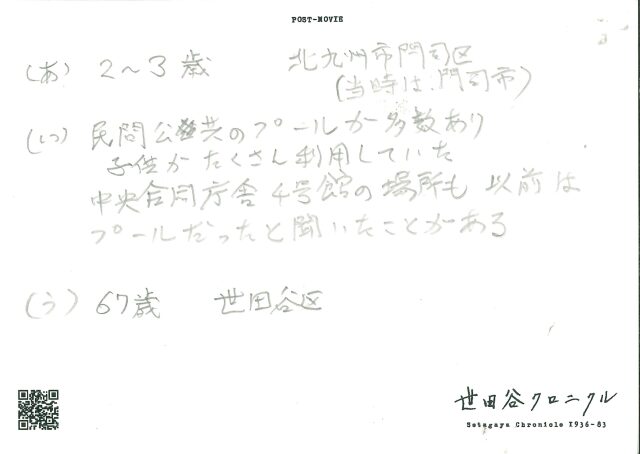 POST-MOVIE
(あ) 2～3歳 北九州市門司区
(当時は、門司市)
(い) 民間公共のプールが多数あり
子供がたくさん利用していた
中央合同庁舎4号館の場所も 以前は
プールだったと聞いたことがある
(う) 67歳 世田谷区
世田谷クロニクル
Setagaya Chronicle 1936-83